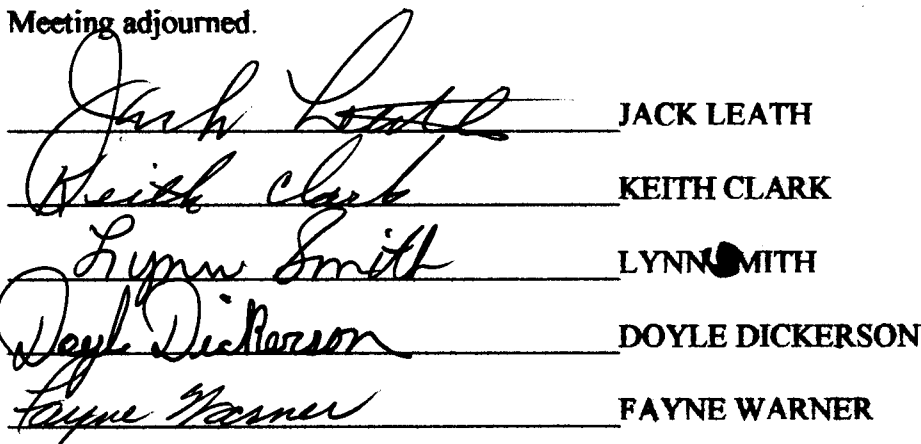 Meeting adjourned.
Jack Leath JACK LEATH
Keith Clark KEITH CLARK
Lynn Smith LYNN SMITH
Doyle Dickerson DOYLE DICKERSON
Fayne Warner FAYNE WARNER